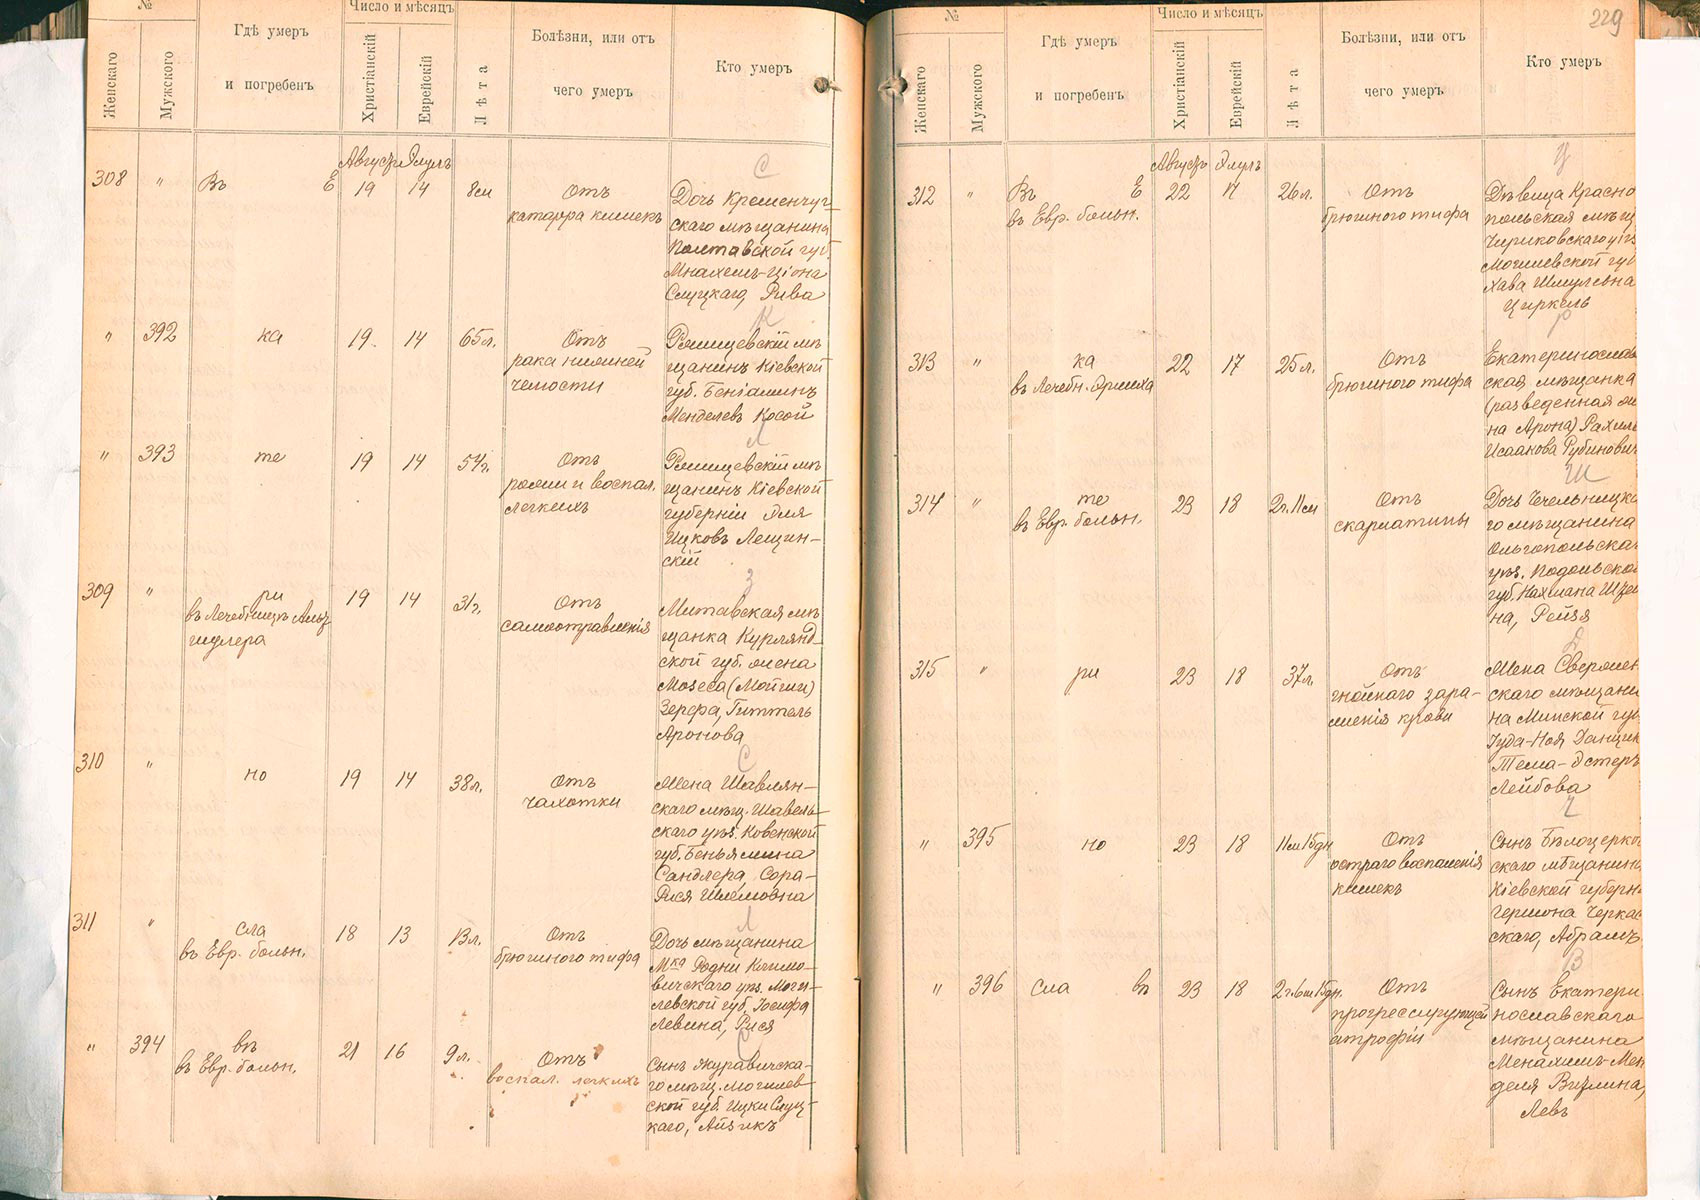 №
Число и мѣсяцъ
Женскаго
Мужского
Гдѣ умеръ
и погребенъ
Христіанскій
Еврейскій
Лѣта
Болѣзни, или отъ
чего умеръ
Кто умеръ
Августъ Элулъ
С
308 " Въ Е 19 14 8 м
Отъ
катарра кишекъ
Дочь Кременчуг-
скаго мѣщанина
Полтавской губ.
Мнахемъ-Ціона
Слуцкаго, Рива
К
" 392 ка 19 14 65 л.
Отъ
рака нижней
челюсти
Ржищевскій мѣ
щанинъ Кіевской
губ. Беніаминъ
Менделевъ Косой
Л
" 393 те 19 14 54 г.
Отъ
рожи и воспал.
легкихъ
Ржищевскій мѣ
щанинъ Кіевской
губерніи Эля
Ицковъ Лещин-
скій
З
309 " ри 19 14 31 г.
въ Лечебницѣ
шулера
Отъ
самоотравленія
Митавская мѣ
щанка Курлянд-
ской губ. жена
Мозеса (Мойши)
Зерфа, Гиттель
Аронова
С
310 " но 19 14 38 л.
Отъ
чахотки
Жена Шавлян-
скаго мѣщ. Шавель-
скаго уѣз. Ковенской
губ. Беньямина
Сандлера, Сора-
Рися Шлемовна
Л
311 " сла 18 13 13 л.
въ Евр. больн.
Отъ
брюшного тифа
Дочь мѣщанина
Мка Родни Климо-
вичскаго уѣз. Моги-
левской губ. Іосифа
Левина, Рися
С
" 394 въ 21 16 9 л.
въ Евр. больн.
Отъ
воспал. легкихъ
Сынъ Журавичска-
го мѣщ. Могилев-
ской губ. Ицки Слуц-
каго, Айзикъ
229
№
Число и мѣсяцъ
Женскаго
Мужского
Гдѣ умеръ
и погребенъ
Христіанскій
Еврейскій
Лѣта
Болѣзни, или отъ
чего умеръ
Кто умеръ
Августъ Элулъ
Ц
312 " Въ Е 22 17 26 л.
въ Евр. больн.
Отъ
брюшного тифа
Дѣвица Красно
польская мѣщ
Чериковскаго уѣз
Могилевской губ
Хава Шмулевна
Циркель
Р
313 " ка 22 17 25 л.
въ Лечебн.
Отъ
брюшного тифа
Екатеринослав
ская мѣщанка
(разведенная же
на Арона) Рахиль
Исаакова Рубинович
Ш
314 " те 23 18 2 г. 11 м
въ Евр. больн.
Отъ
скарлатины
Дочь Чечельницка
го мѣщанина
Ольгопольска
уѣз. Подольско
губ. Нахмана
на, Рейзя
Д
315 " ри 23 18 37 л.
Отъ
гнойнаго зара-
женія крови
Жена Свержен
скаго мѣщани
на Минской губ
Іуда-Ноя Данцик
Тема-Эстеръ
Лейбова
Ч
" 395 но 23 18 11 м 15 дн
Отъ
остраго воспаленія
кишекъ
Сынъ Бѣлоцерко
скаго мѣщанина
Кіевской губерн
Гершона Черкас
скаго, Абрамъ
В
" 396 сла въ 23 18 2 г. 6 м 15 дн.
Отъ
прогрессирующей
атрофіи
Сынъ Екатери
нославскаго
мѣщанина
Менахимъ-Мен
деля Вирлина,
Левъ